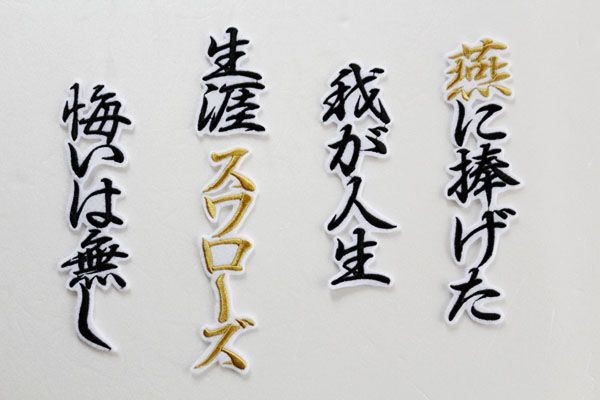 燕に捧げた
我が人生
生涯スワローズ
悔いは無し